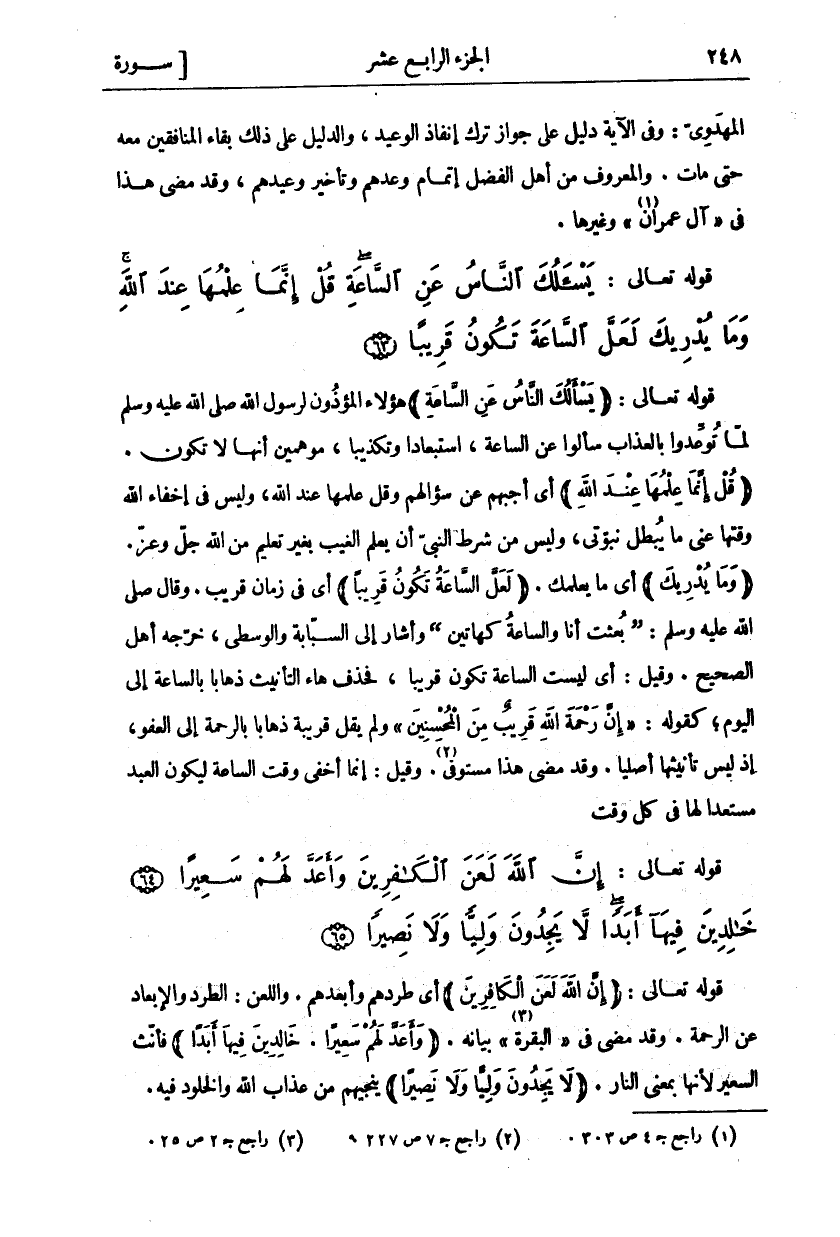 ٢٤٨ الجزء الرابع عشر [ ســورة
المهدَوِىّ : وفى الآية دليل على جواز ترك إنفاذ الوعيد ، والدليل على ذلك بقاء المنافقين معه
حتى مات . والمعروف من أهل الفضل إتمـام وعدهم وتأخير وعيدهم ، وقد مضى هـذا
فى « آل عمران(١) » وغيرها .
قوله تعـالى : يَسْـَٔلُكَ ٱلنَّاسُ عَنِ ٱلسَّاعَةِ ۖ قُلْ إِنَّمَـا عِلْمُهَا عِندَ ٱللَّهِ ۚ
وَمَا يُدْرِيكَ لَعَلَّ ٱلسَّاعَةَ تَكُونُ قَرِيبًا ﴿٦٣﴾
قوله تعـالى : ﴿ يَسْأَلُكَ النَّاسُ عَنِ السَّاعَةِ ﴾ هؤلاء المؤذُون لرسول الله صلى الله عليه وسلم
لمّـا تُوعِّدوا بالعذاب سألوا عن الساعة ، استبعادا وتكذيبا ، موهمين أنهـا لا تكون .
﴿ قُلْ إِنَّمَا عِلْمُهَا عِنْـدَ اللَّهِ ﴾ أى أجبهم عن سؤالهم وقل علمها عند الله، وليس فى إخفاء الله
وقتها عنى ما يُبطل نبوّتى، وليس من شرط النبىّ أن يعلم الغيب بغير تعليم من الله جلّ وعزّ.
﴿ وَمَا يُدْرِيكَ ﴾ أى ما يعلمك . ﴿ لَعَلَّ السَّاعَةَ تَكُونُ قَرِيبًا ﴾ أى فى زمان قريب . وقال صلى
الله عليه وسلم : ” بُعثت أنا والساعةُ كهاتين “ وأشار إلى السـبّابة والوسطى ، خرّجه أهل
الصحيح . وقيل : أى ليست الساعة تكون قريبا ، فحذف هاء التأنيث ذهابا بالساعة إلى
اليوم؛ كقوله : « إِنَّ رَحْمَةَ اللهِ قَرِيبٌ مِنَ الْمُحْسِنِينَ » ولم يقل قريبة ذهابا بالرحمة إلى العفو،
إذ ليس تأنيثها أصليا . وقد مضى هذا مستوفى(٢) . وقيل : إنما أخفى وقت الساعة ليكون العبد
مستعدا لها فى كل وقت
قوله تعـالى : إِنَّ ٱللَّهَ لَعَنَ ٱلْكَـٰفِرِينَ وَأَعَدَّ لَهُـمْ سَـعِيرًا ﴿٦٤﴾
خَـٰلِدِينَ فِيهَآ أَبَدًا ۖ لَّا يَجِدُونَ وَلِيًّا وَلَا نَصِيرًا ﴿٦٥﴾
قوله تعـالى : ﴿ إِنَّ اللَّهَ لَعَنَ الْكَافِرِينَ ﴾ أى طردهم وأبعدهم . واللعن : الطرد والإبعاد
عن الرحمة . وقد مضى فى « البقرة(٣) » بيانه . ﴿ وَأَعَدَّ لَهُمْ سَعِيرًا . خَالِدِينَ فِيهَا أَبَدًا ﴾ فأنّث
السعير لأنها بمعنى النار . ﴿ لَا يَجِدُونَ وَلِيًّا وَلَا نَصِيرًا ﴾ ينجيهم من عذاب الله والخلود فيه .
(١) راجع جـ ٤ ص ٣٠٣ . (٢) راجع جـ ٧ ص ٢٢٧ (٣) راجع جـ ٢ ص ٢٥ .